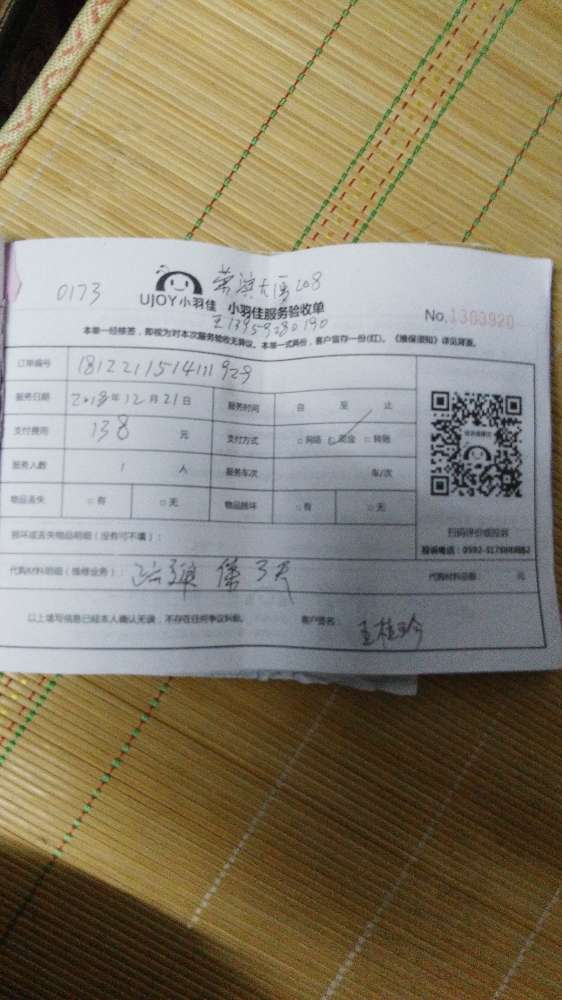 0173
荣滨大厦208
UJOY小羽佳 小羽佳服务验收单
王13959280190
No.1303920
本单一经核签，即视为对本次服务验收无异议。本单一式两份，客户留存一份(红)。《维保须知》详见背面。
订单编号 181221151411929
服务日期 2018年12月21日 服务时间 自 至 止
支付费用 138 元 支付方式 □网络 □现金 □转账
服务人数 1 人 服务车次 车/次
物品丢失 □有 □无 物品损坏 □有 □无
扫码评价或投诉
损坏或丢失物品明细（没有可不填）：
代购材料明细（维修业务）： 代购材料总额： 元
以上填写信息已经本人确认无误，不存在任何争议纠纷。 客户签名： 王桂珍